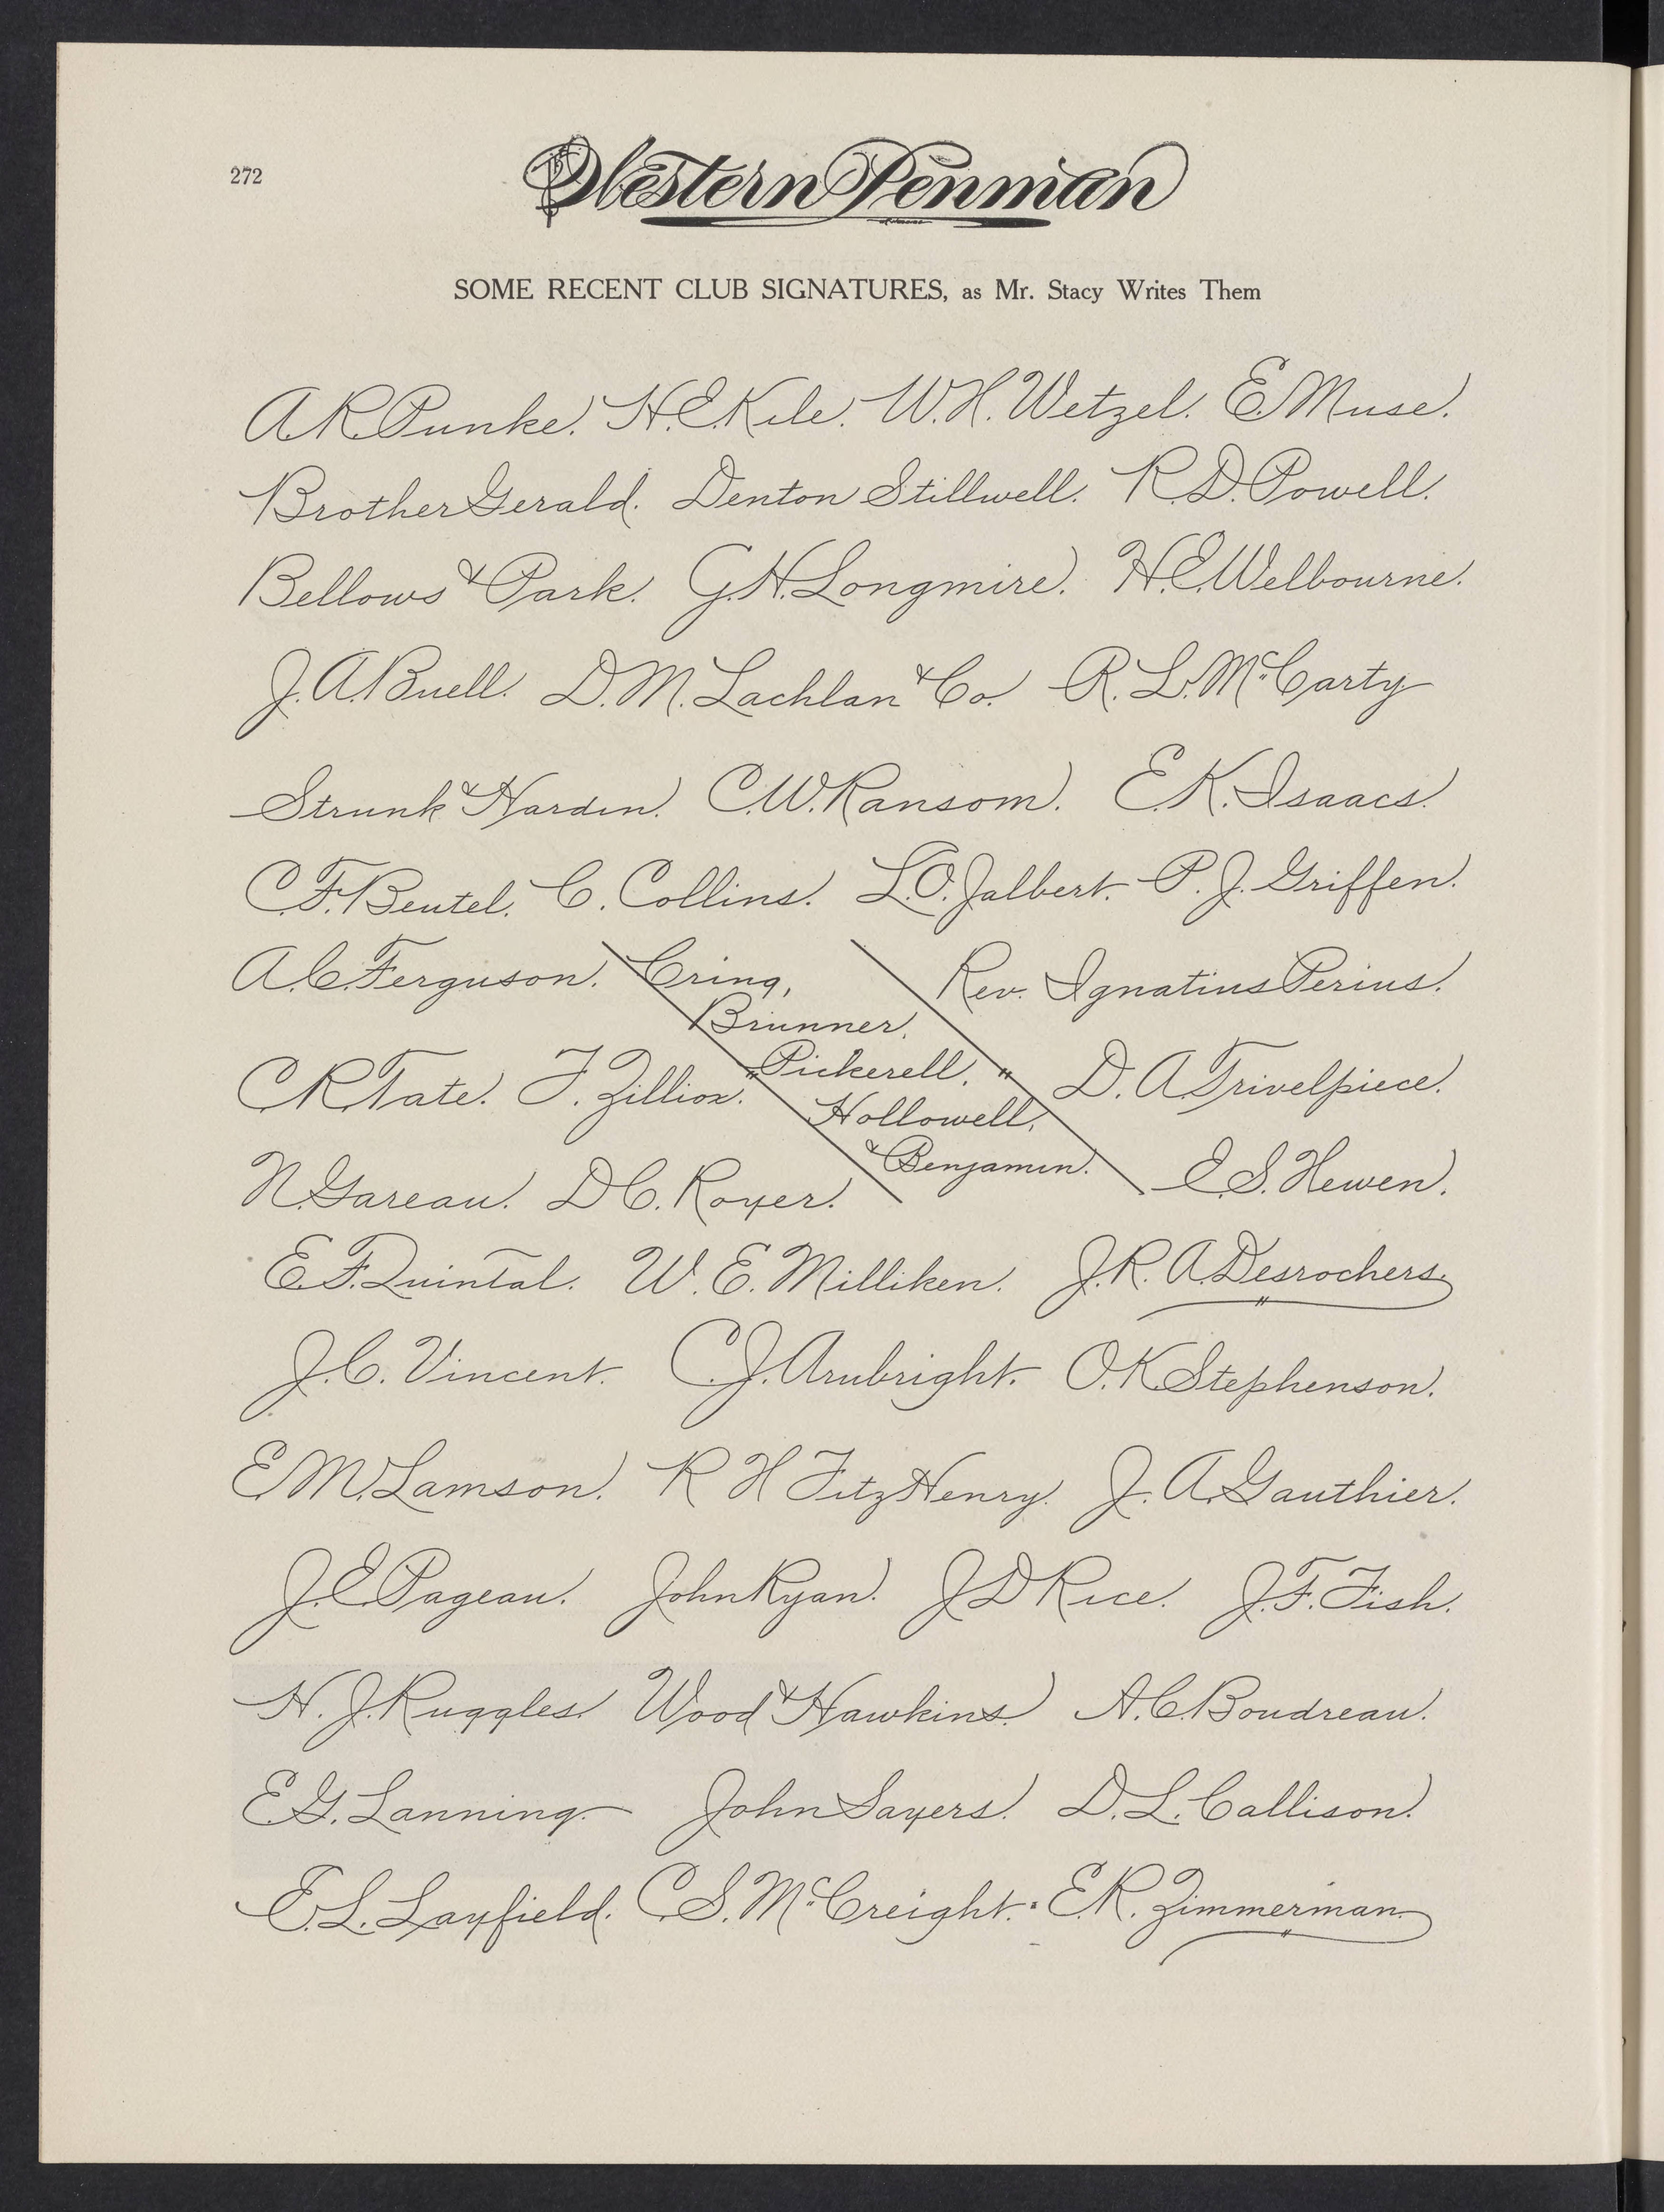 272
Western Penman
SOME RECENT CLUB SIGNATURES, as Mr. Stacy Writes Them
A.R. Punke. H.E. Kile. W.H. Wetzel. E. Muse.
Brother Gerald. Denton Stillwell. R.D. Powell.
Bellows & Park. G.H. Longmire. H.E. Welbourne.
J.A. Buell. D.M. Lachlan & Co. R.L. McCarty
Strunk & Hardin. C.W. Ransom. E.K. Isaacs.
C.F. Beutel. C. Collins. L.O. Jalbert. P.J. Griffen.
A.C. Ferguson. Cring, Rev. Ignatius Perius.
Brunner,
Pickerell,
C.R. Tate. F. Zilliox. D.A. Trivelpiece.
Hollowell,
& Benjamin.
N. Gareau. D.C. Royer. E.S. Hewen.
E.F. Quintal. W.E. Milliken. J.R.A. Desrochers.
J.C. Vincent. C.J. Arubright. O.K. Stephenson.
E.M. Lamson. R H FitzHenry. J.A. Gauthier.
J.E. Pageau. John Ryan. J D Rice. J.F. Fish.
H.J. Ruggles. Wood & Hawkins. A.C. Boudreau.
E.G. Lanning. John Sayers. D.L. Callison.
E.L. Layfield. C.S. McCreight. E.R. Zimmerman.